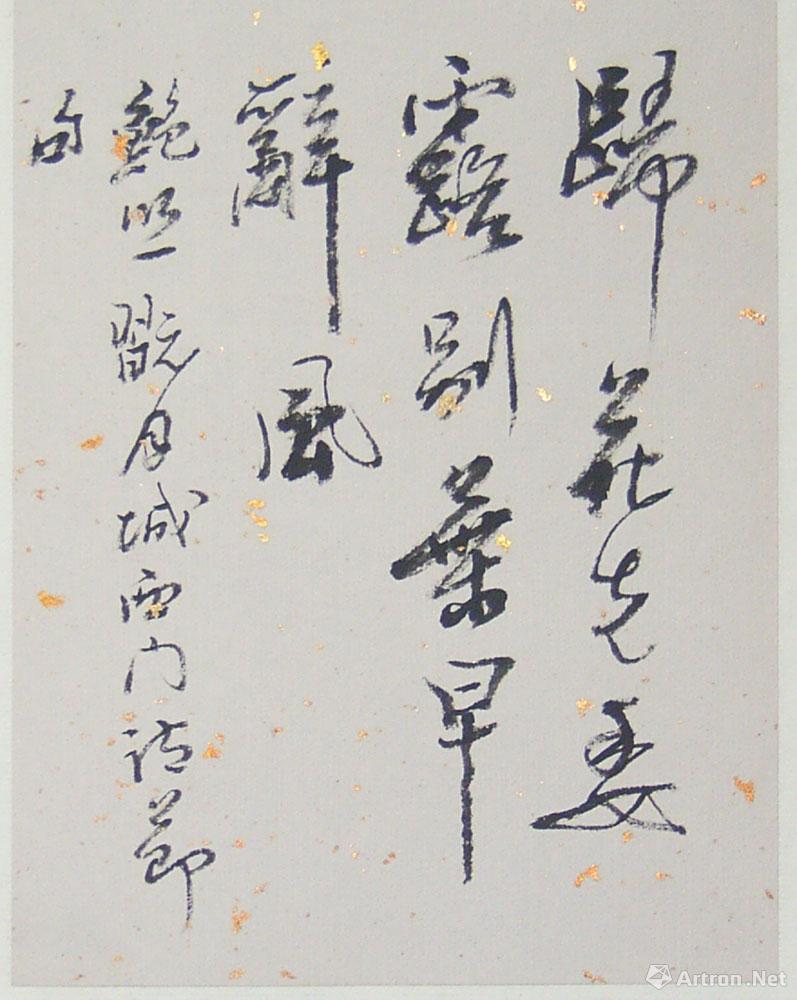 歸花先委
露別葉早
辭風
鮑照翫月城西門詩節
句
Artron.Net